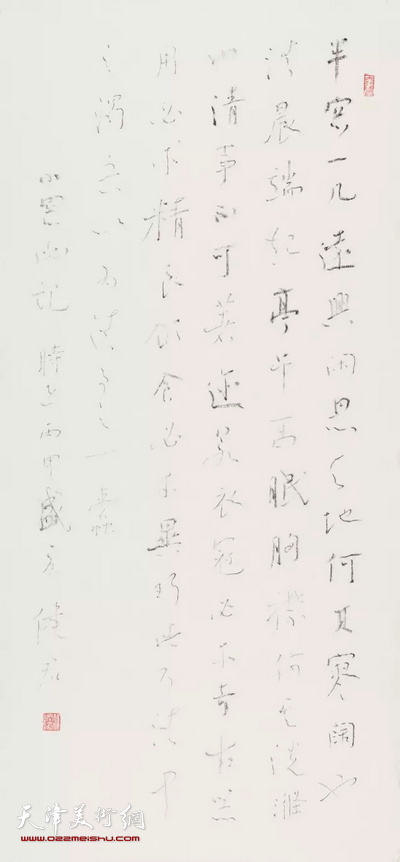 半窗一几遠興闲思天地何其寥阔也
清晨端起亭午高眠胸襟何其洗滌
也清事不可著迹若衣冠必求奇古器
用必求精良飲食必求異巧此乃清中
之濁吾以為清事之一蠹
小窗幽記 時在丙申盛夏 君
天津美術網
www.022meishu.com